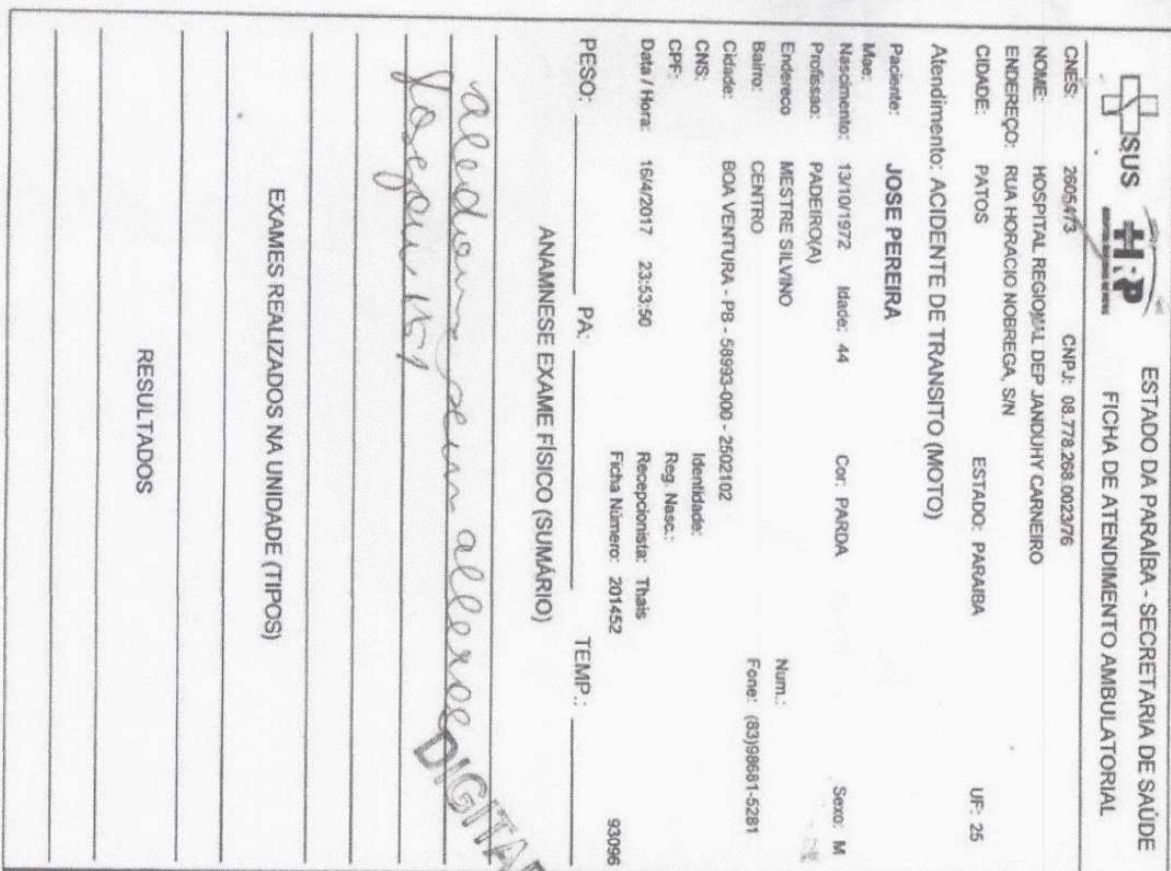 SUS HRP
ESTADO DA PARAÍBA - SECRETARIA DE SAÚDE
FICHA DE ATENDIMENTO AMBULATORIAL
CNES: 2605473 CNPJ: 08.778.268.0023/76
NOME: HOSPITAL REGIONAL DEP JANDUHY CARNEIRO
ENDEREÇO: RUA HORACIO NOBREGA, S/N
CIDADE: PATOS ESTADO: PARAIBA UF: 25
Atendimento: ACIDENTE DE TRANSITO (MOTO)
Paciente: JOSE PEREIRA
Mae:
Nascimento: 13/10/1972 Idade: 44 Cor: PARDA Sexo: M
Profissao: PADEIRO(A)
Endereco MESTRE SILVINO Num.:
Bairro: CENTRO Fone: (83)98681-5281
Cidade: BOA VENTURA - PB - 58993-000 - 2502102
CNS: Identidade:
CPF: Reg. Nasc.:
Data / Hora: 16/4/2017 23:53:50 Recepcionista: Thais
Ficha Número: 201452 93096
PESO: PA: TEMP.:
ANAMNESE EXAME FÍSICO (SUMÁRIO)
DIGITA
EXAMES REALIZADOS NA UNIDADE (TIPOS)
RESULTADOS